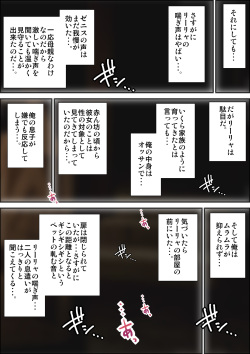 それにしても・・・
さすがに
リーリャの
喘ぎ声
はやばい・・・。
ゼニスの声は
まだ我慢が
効いた・・・。
一応母親なわけ
なのだから
激しい喘ぎ声を
聞いても温かく
見守ることが
できた・・・
だがリーリャは
駄目だ。
いくら家族のように
育ってきたとは
言っても・・・
俺の中身は
オッサンで・・・
赤ん坊の頃から
彼女のことは
性の対象として
見てきてしまって
いたのだから・・・
俺の息子が
嫌でも反応して
しまう・・・
そして俺は
ムラムラが
抑えられず・・・
気づいたら
リーリャの部屋の
前にいた・・・。
扉は閉じられて
いたが・・・さすがに
この距離となると
ギシギシという
ベットの軋む音と
リーリャの喘ぎ声・・・
二人の息遣いが
はっきりと
聞こえてくる・・・。